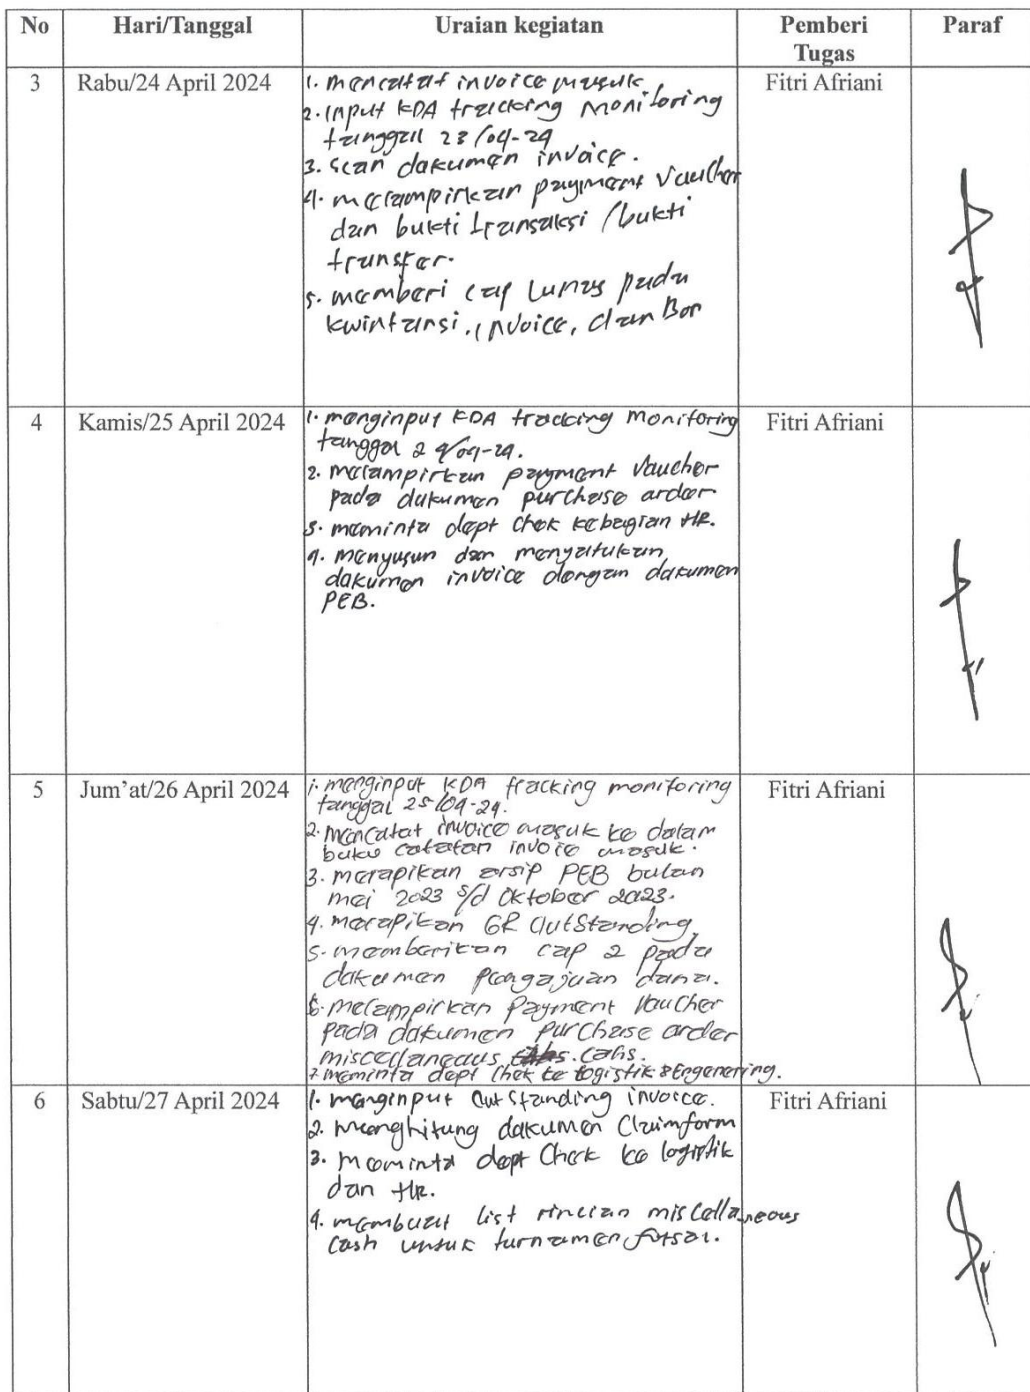 No Hari/Tanggal Uraian kegiatan Pemberi Tugas Paraf
3 Rabu/24 April 2024 Fitri Afriani
1. mencatat invoice masuk
2. input KDA tracking monitoring
tanggal 23/04-24
3. scan dakumen invoice.
4. melampirkan payment Vaucher
dan bukti transaksi /bukti
transfer.
5. memberi cap Lunas pada
kwintansi, invoice, dan Bon
4 Kamis/25 April 2024 Fitri Afriani
1. menginput KDA tracking monitoring
tanggal 24/04-24.
2. melampirkan payment Vaucher
pada dakumen purchase order
3. meminta dept chek kebagian HR.
4. menyusun dan menyatukan
dakumen invoice dengan dakumen
PEB.
5 Jum'at/26 April 2024 Fitri Afriani
1. menginput KDA tracking monitoring
tanggal 25/04-24.
2. mencatat invoice masuk ke dalam
buku catatan invoice masuk.
3. merapikan arsip PEB bulan
mei 2023 s/d Oktober 2023.
4. merapikan GR OutStanding
5. memberikan cap 2 pada
dakumen pengajuan dana.
6. melampirkan Payment Vaucher
pada dakumen Purchase order
miscellaneous cahs.
7. meminta dept chek ke logistik & Engenering.
6 Sabtu/27 April 2024 Fitri Afriani
1. menginput OutStanding invoice.
2. menghitung dakumen Claimform
3. meminta dept Chek ke logistik
dan HR.
4. membuat list rincian miscellaneous
Cash untuk turnamen futsal.